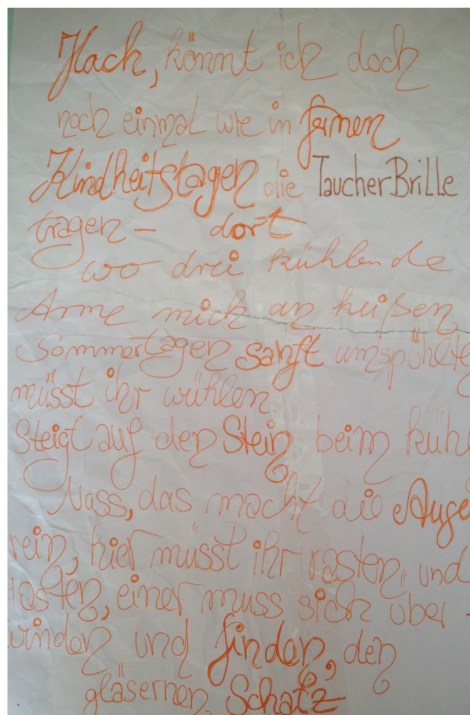 Hach, könnt ich doch
noch einmal wie in fernen
Kindheitstagen die TaucherBrille
tragen – dort
wo drei kühlende
Arme mich an heißen
Sommertagen sanft umspühlte
müsst ihr wühlen.
Steigt auf den Stein, beim kühl
Nass, das macht die Auge
rein, hier müsst ihr rasten, und
tasten, einer muss sich über-
winden und finden, den
gläsernen Schatz